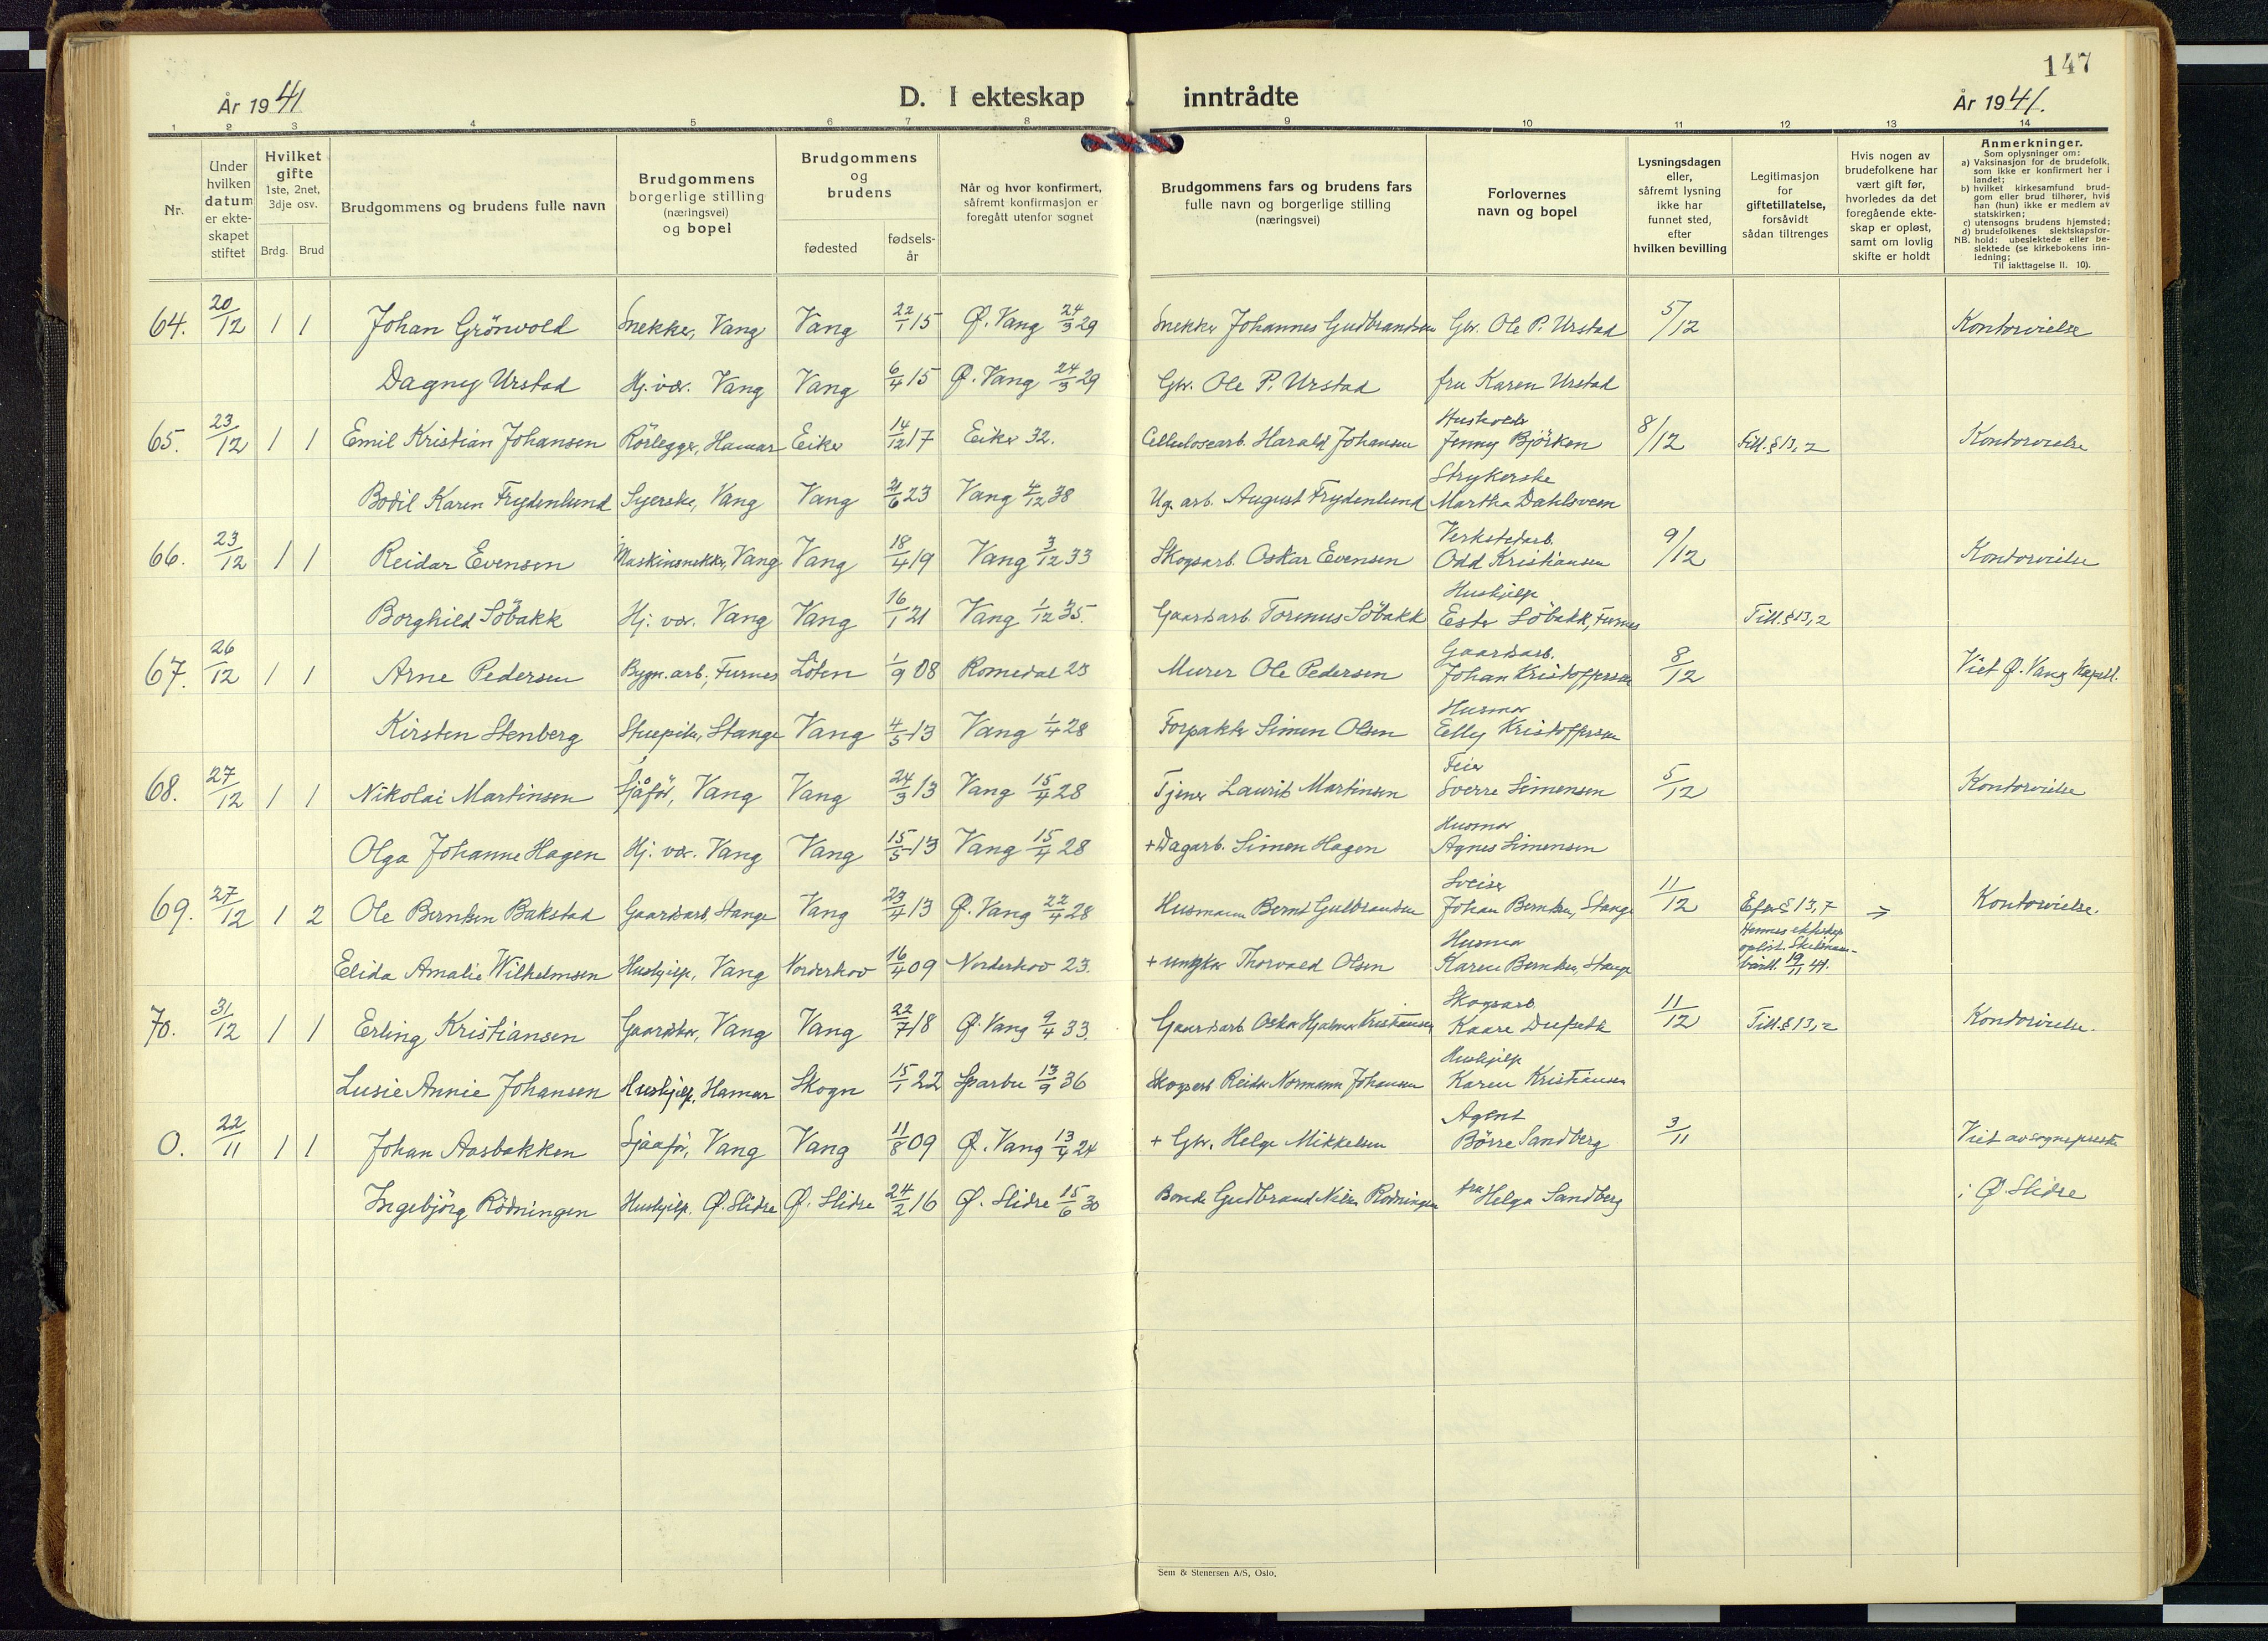 147
År 1941
D. I ekteskap inntrådte
År 1941.
1 2 3 4 5 6 7 8 9 10 11 12 13 14
Nr.
Under hvilken datum er ekteskapet stiftet
Hvilket gifte 1ste, 2net, 3dje osv.
Brdg. Brud
Brudgommens og brudens fulle navn
Brudgommens borgerlige stilling (næringsvei) og bopel
Brudgommens og brudens
fødested
fødselsår
Når og hvor konfirmert, såfremt konfirmasjon er foregått utenfor sognet
Brudgommens fars og brudens fars fulle navn og borgerlige stilling (næringsvei)
Forlovernes navn og bopel
Lysningsdagen eller, såfremt lysning ikke har funnet sted, efter hvilken bevilling
Legitimasjon for giftetillatelse, forsåvidt sådan tiltrenges
Hvis nogen av brudefolkene har vært gift før, hvorledes da det foregående ekteskap er opløst, samt om lovlig skifte er holdt
Anmerkninger.
Som oplysninger om:
a) Vaksinasjon for de brudefolk, som ikke er konfirmert her i landet;
b) hvilket kirkesamfund brudgom eller brud tilhører, hvis han (hun) ikke er medlem av statskirken;
c) utensogns brudens hjemsted;
d) brudefolkenes slektskapsforhold: ubeslektede eller beslektede (se kirkebokens innledning;
NB. Til iakttagelse II. 10).
64. 20/12 1 1 Johan Grönvold Snekker, Vang Vang 22/1 15 Ø. Vang 24/3 29 Snekker Johannes Gudbrandsen Gbr. Ole P. Urstad 5/12 Kontorvielse
Dagny Urstad Hj. vær. Vang Vang 6/4 15 Ø. Vang 24/3 29 Gbr. Ole P. Urstad fru Karen Urstad
65. 23/12 1 1 Emil Kristian Johansen Rörlegger, Hamar Eiker 14/12 17 Eiker 32. Cellulosearb. Harald Johansen Jenny Björken 8/12 Till. § 13, 2 Kontorvielse
Bodil Karen Frydenlund Syerske, Vang Vang 21/6 23 Vang 4/12 38 Ug. arb. August Frydenlund Strykerske Martha Dahlsveen
66. 23/12 1 1 Reidar Evensen Maskinsnekker, Vang Vang 18/4 19 Vang 3/12 33 Skogsarb. Oskar Evensen Verkstedarb. Odd Kristiansen 9/12 Kontorvielse
Borghild Söbakk Hj. vær. Vang Vang 16/1 21 Vang 1/12 35. Gaardsarb. Tormus Söbakk Hushjelp Ester Söbakk, Furnes Till. § 13, 2
67. 26/12 1 1 Arne Pedersen Bygn. arb., Furnes Löten 1/9 08 Romedal 23 Murer Ole Pedersen Gaardsarb. Johan Kristoffersen 8/12 Viet Ø. Vang Kapell.
Kirsten Stenberg Stuepike, Stange Vang 4/5 13 Vang 1/4 28 Forpakter Simen Olsen Husmor Elly Kristoffersen
68. 27/12 1 1 Nikolai Martinsen Sjåfør, Vang Vang 24/3 13 Vang 15/4 28 Tjener Laurits Martinsen Feier Sverre Simensen 5/12 Kontorvielse
Olga Johanne Hagen Hj. vær. Vang Vang 15/5 13 Vang 15/4 28 + Dagarb. Simen Hagen Husmor Agnes Simensen
69. 27/12 1 2 Ole Berntsen Bakstad Gaardsarb, Stange Vang 23/4 13 Ø. Vang 22/4 28 Husmann Bernt Gulbrandsen Sveiser Johan Berntsen, Stange 11/12 Efter § 13, 7 Kontorvielse.
Elida Amalie Wilhelmsen Hushjelp, Vang Norderhov 16/4 09 Norderhov 23. + Thorvald Olsen Husmor Karen Berntsen, Stange Hennes ekteskap opløst. 19/11 41.
70. 31/12 1 1 Erling Kristiansen Gaardsbr, Vang Vang 22/7 18 Ø. Vang 9/4 33. Gaardsarb Oskar Hjalmar Kristiansen Skogsarb Kaare Dufseth 11/12 Till. § 13, 2 Kontorvielse.
Lusie Annie Johansen Hushjelp, Hamar Skogn 15/1 22 Sparbu 13/9 36 Skogsarb Reidar Normann Johansen Hushjelp Karen Kristiansen
O. 22/11 1 1 Johan Aasbakken Sjaafør, Vang Vang 11/8 09 Ø. Vang 13/4 24 + Gbr. Helge Mikkelsen Agent Börre Sandberg 3/11 Viet av sogneprest
Ingebjörg Rödningen Hushjelp. Ø. Slidre Ø. Slidre 24/2 16 Ø. Slidre 15/6 30 Bonde Gudbrand Nilsen Rödningen fru Helga Sandberg i Ø. Slidre
Sem & Stenersen A/S, Oslo.